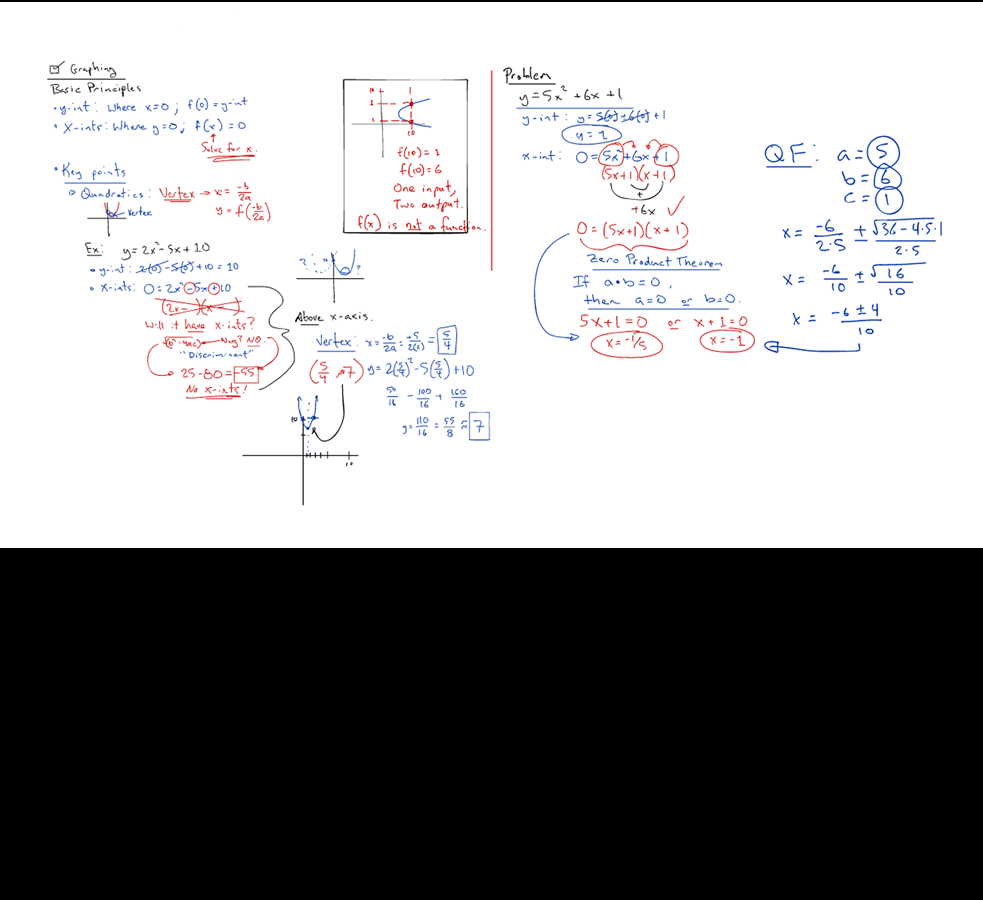 Graphing
Basic Principles
• y-int: Where x=0; f(0) = y-int
• X-ints: Where y=0; f(x) = 0
Solve for x.
• Key points
Quadratics: Vertex → x = -b/2a
y = f(-b/2a)
Vertex
Ex: y = 2x² - 5x + 10
• y-int: 2(0) - 5(0) + 10 = 10
• X-ints: 0 = 2x² - 5x + 10
(2x- )(x )
Will it have x-ints?
√(b²-4ac) ← Neg? NO.
"Discriminant"
25 - 80 = -55
No x-ints!
1
10
f(10) = 1
f(10) = 6
One input,
Two output.
f(x) is not a function.
? ?
Above x-axis.
Vertex: x = -b/2a = +5/2(2) = 5/4
(5/4, 7) y = 2(5/4)² - 5(5/4) + 10
50/16 - 100/16 + 160/16
y = 110/16 = 55/8 ≈ 7
10
10
Problem
y = 5x² + 6x + 1
y-int: y = 5(0) + 6(0) + 1
y = 1
x-int: 0 = 5x² + 6x + 1
(5x+1)(x+1)
+
+6x ✓
0 = (5x+1)(x+1)
Zero Product Theorem
If a•b = 0,
then a=0 or b=0.
5x+1=0 or x+1=0
x = -1/5 x = -1
QF: a = 5
b = 6
c = 1
x = -6/2·5 ± √36-4·5·1/2·5
x = -6/10 ± √16/10
x = -6 ± 4/10